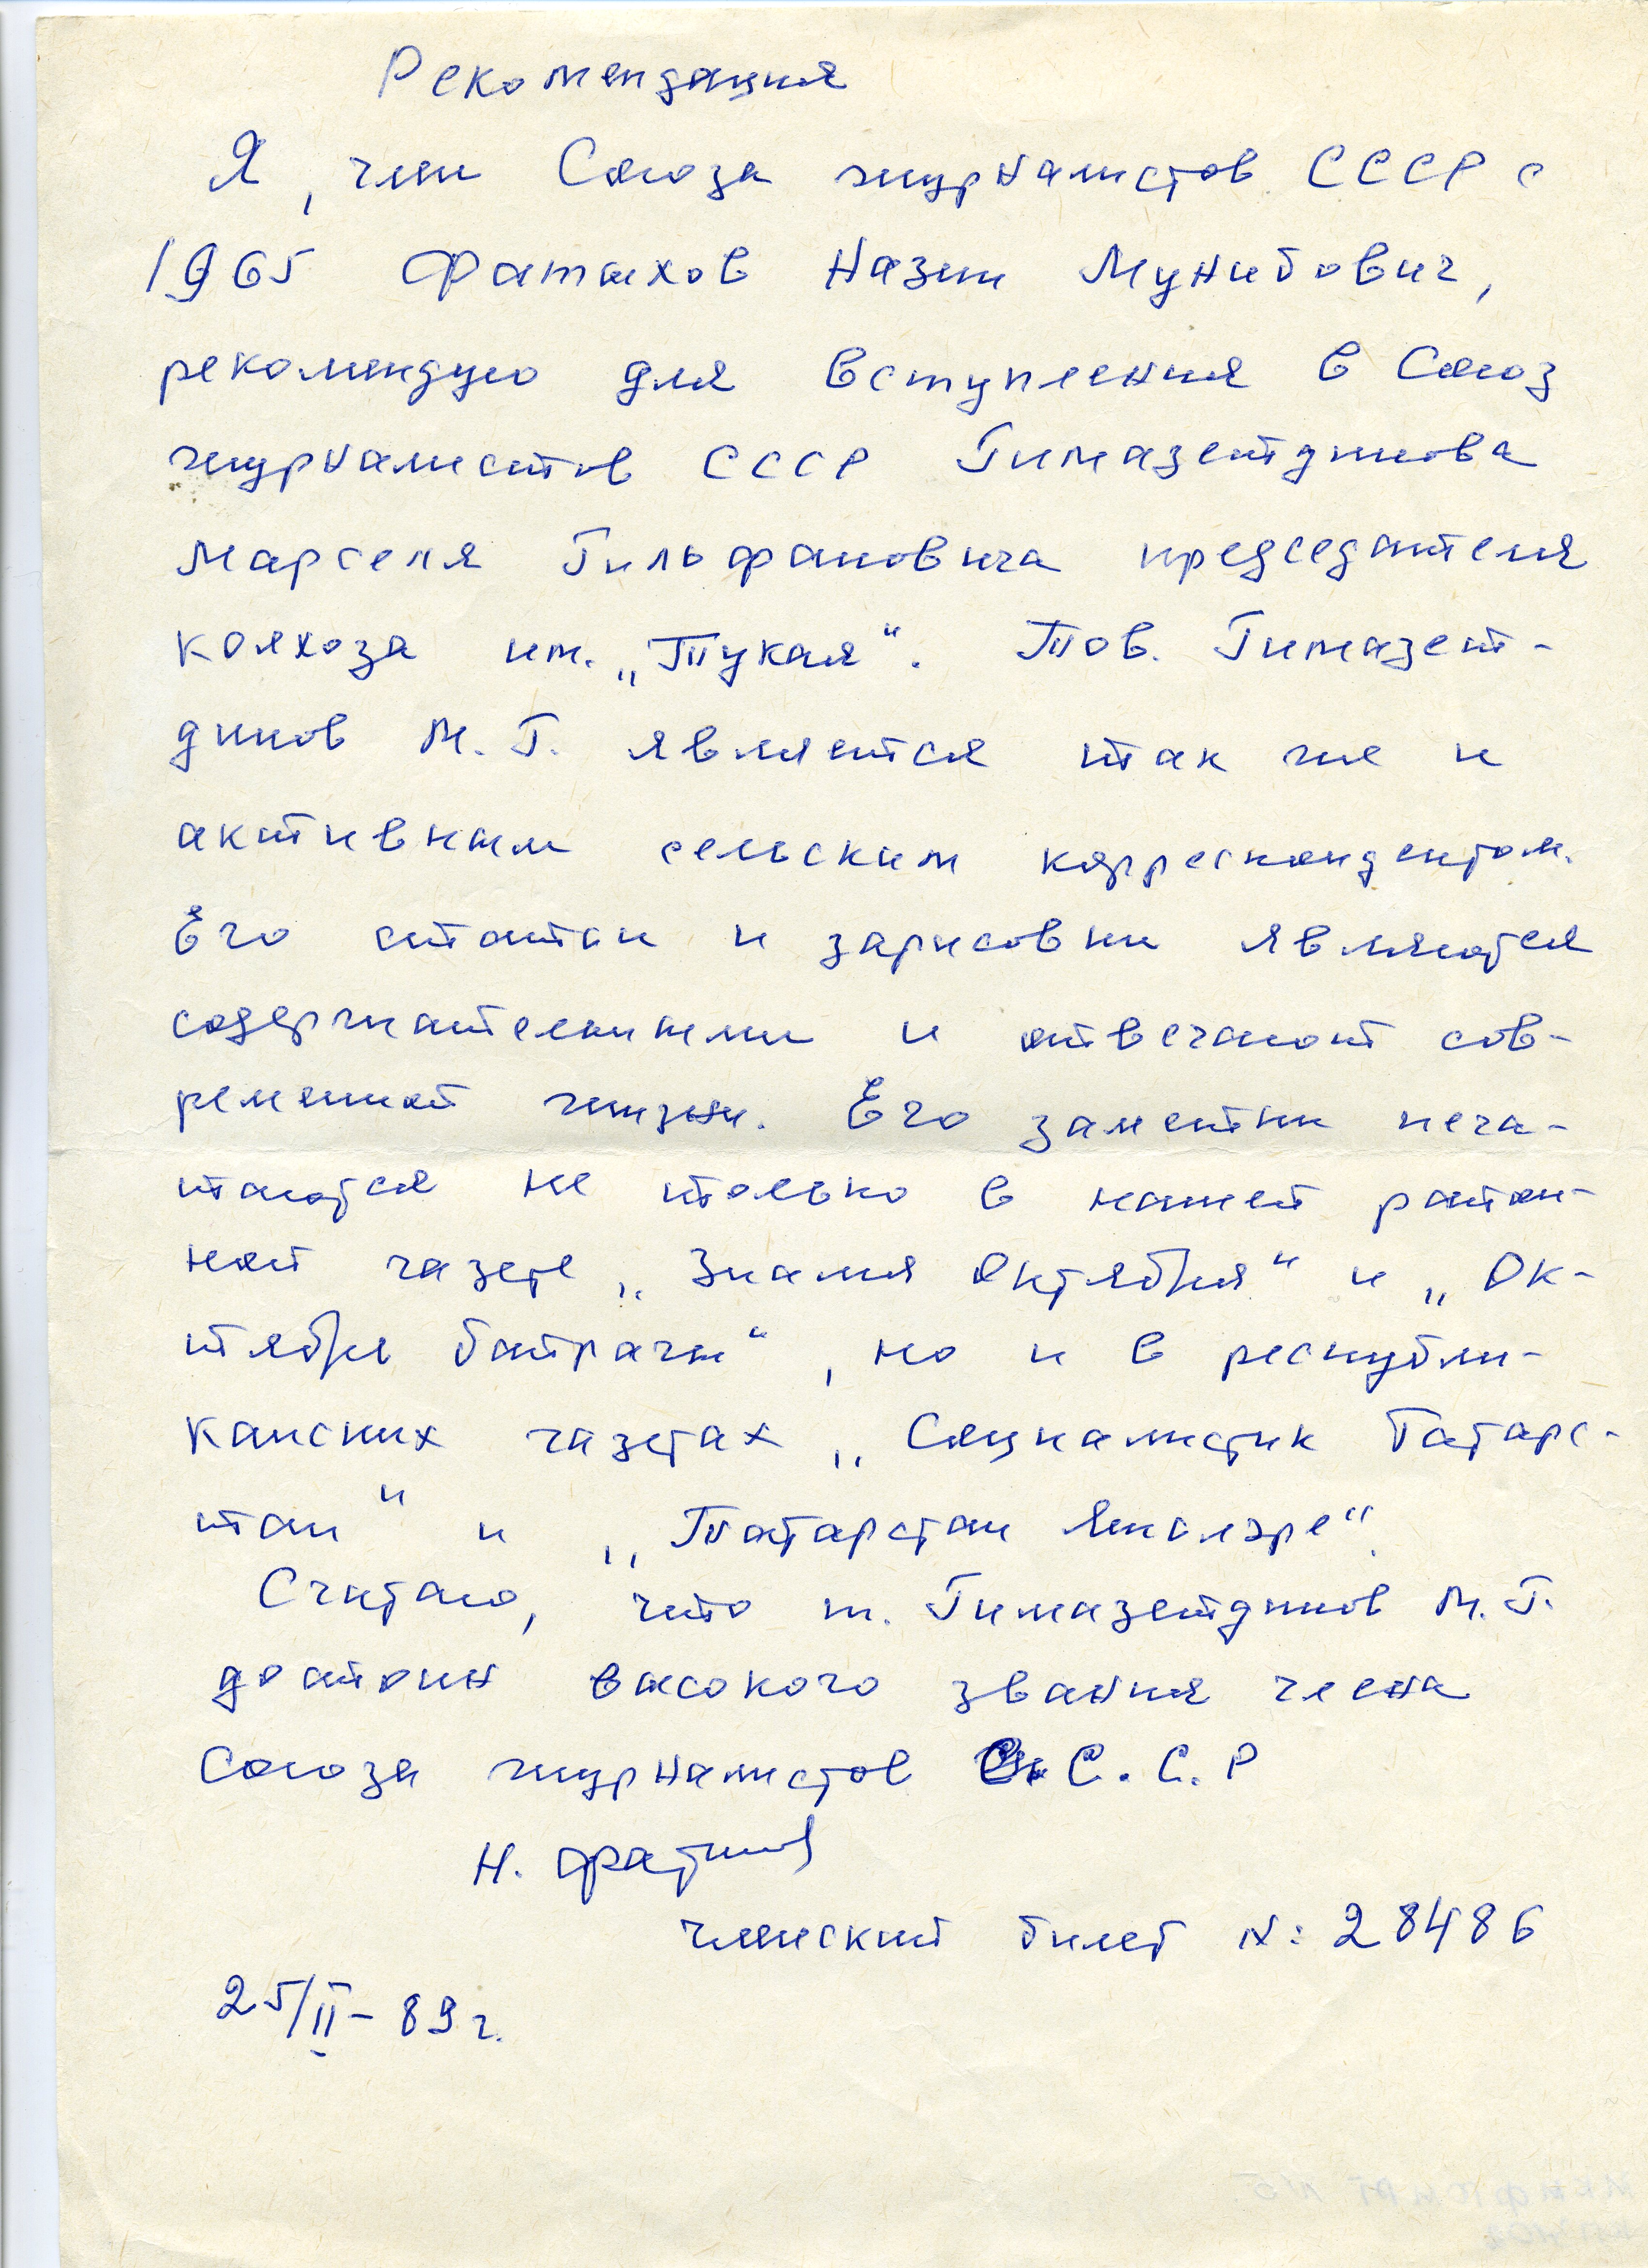 Рекомендация
Я, член Союза журналистов СССР с
1965 Фатыхов Назип Мунибович,
рекомендую для вступления в Союз
журналистов СССР Гимазетдинова
Марселя Гильфановича председателя
колхоза им. „Тукая“. Тов. Гимазет-
динов М. Г. является так же и
активным сельским корреспондентом.
Его статьи и зарисовки являются
содержательными и отвечают сов-
ременной жизни. Его заметки печа-
таются не только в нашей район-
ной газете „Знамя Октября“ и „Ок-
тябрь байрагы“, но и в республи-
канских газетах „Социалистик Татарс-
тан“ и „Татарстан яшьлэре“.
Считаю, что т. Гимазетдинов М. Г.
достоин высокого звания члена
Союза журналистов С. С. Р
Н. Фатыхов
членский билет №: 28486
25/II – 89 г.